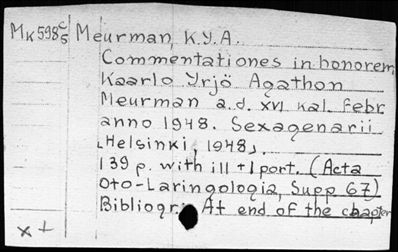 MK 598 C/5 Meurman, K.Y.A.
Commentationes in honorem
Kaarlo Yrjö Agathon
Meurman a.d. XVI Kal. Febr
anno 1948. Sexagenarii
[Helsinki, 1948].
139 p. with ill + 1 port. (Acta
Oto-Laringologia, Supp 67)
Bibliogr. At end of the chapter
x +